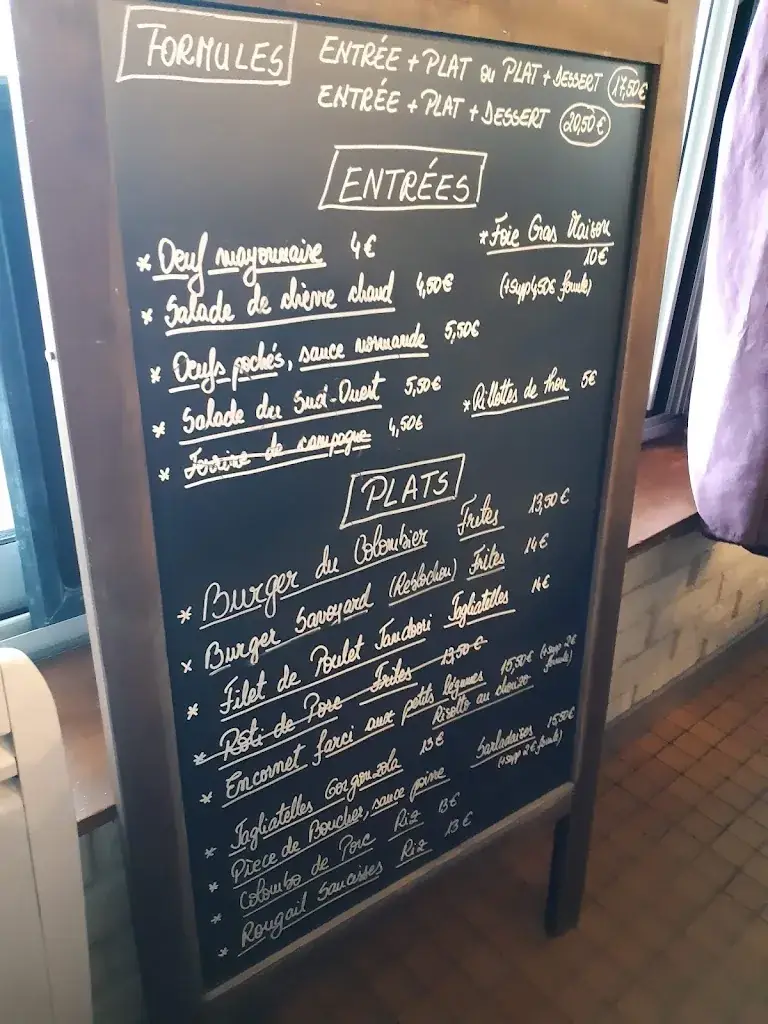 FORMULES
ENTRÉE + PLAT ou PLAT + DESSERT 17,50€
ENTRÉE + PLAT + DESSERT 20,50€
ENTRÉES
* Oeuf mayonnaise 4€
* Foie Gras Maison 10€
(+supp 4,50€ formule)
* Salade de chèvre chaud 4,50€
* Oeufs pochés, sauce normande 5,50€
* Salade du Sud-Ouest 5,50€
* Rillettes de thon 5€
* Terrine de campagne 4,50€
PLATS
* Burger du Colombier Frites 13,50€
* Burger Savoyard (Reblochon) Frites 14€
* Filet de Poulet Tandoori Tagliatelles 14€
* Rôti de Porc Frites 13,50€
* Encornet farci aux petits légumes 15,50€ (+supp 2€ formule)
Risotto au chorizo
* Tagliatelles Gorgonzola 13€
* Pièce de Boucher, sauce poivre Sarladaises 15,50€
(+supp 2€ formule)
* Colombo de Porc Riz 13€
* Rougail Saucisses Riz 13€